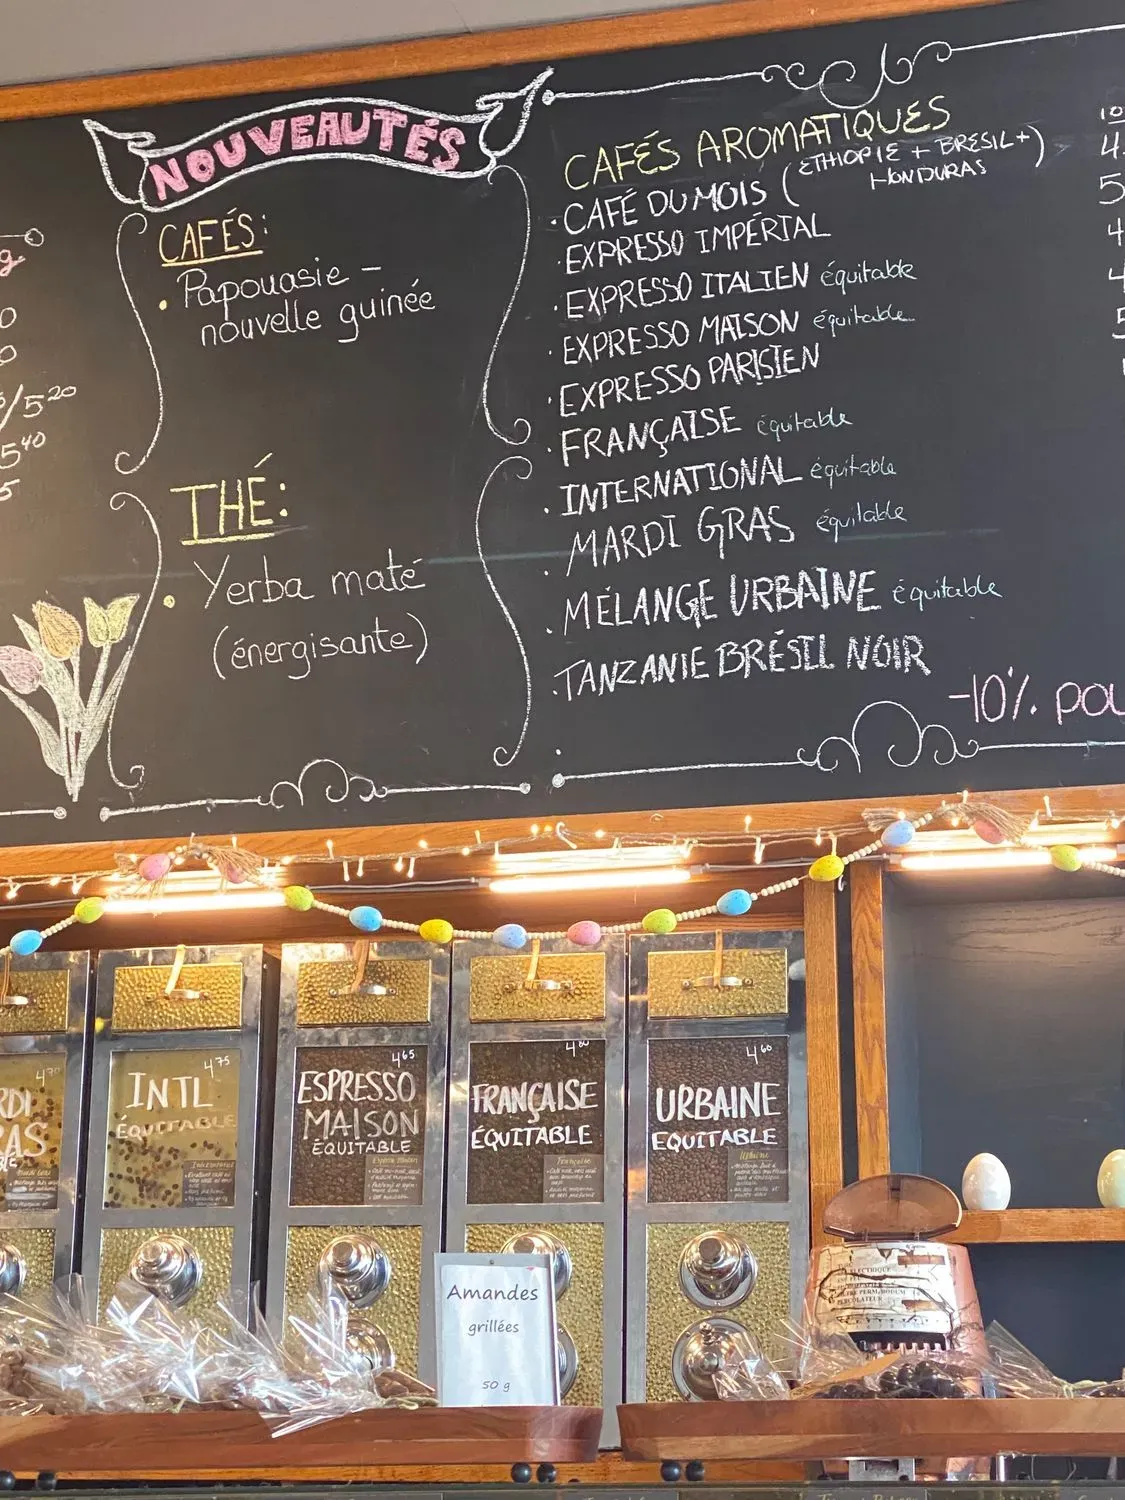 NOUVEAUTÉS
CAFÉS:
• Papouasie –
nouvelle guinée
THÉ:
• Yerba maté
(énergisante)
5²⁰
5⁴⁰
CAFÉS AROMATIQUES
• CAFÉ DU MOIS (ÉTHIOPIE + BRÉSIL +
HONDURAS)
• EXPRESSO IMPÉRIAL
• EXPRESSO ITALIEN équitable
• EXPRESSO MAISON équitable
• EXPRESSO PARISIEN
• FRANÇAISE équitable
• INTERNATIONAL équitable
• MARDI GRAS équitable
• MÉLANGE URBAINE équitable
• TANZANIE BRÉSIL NOIR
-10% pou
4⁷⁵
INTL
ÉQUITABLE
4⁶⁵
ESPRESSO
MAISON
ÉQUITABLE
FRANÇAISE
ÉQUITABLE
Française
4⁶⁰
URBAINE
EQUITABLE
Urbaine
Amandes
grillées
50 g